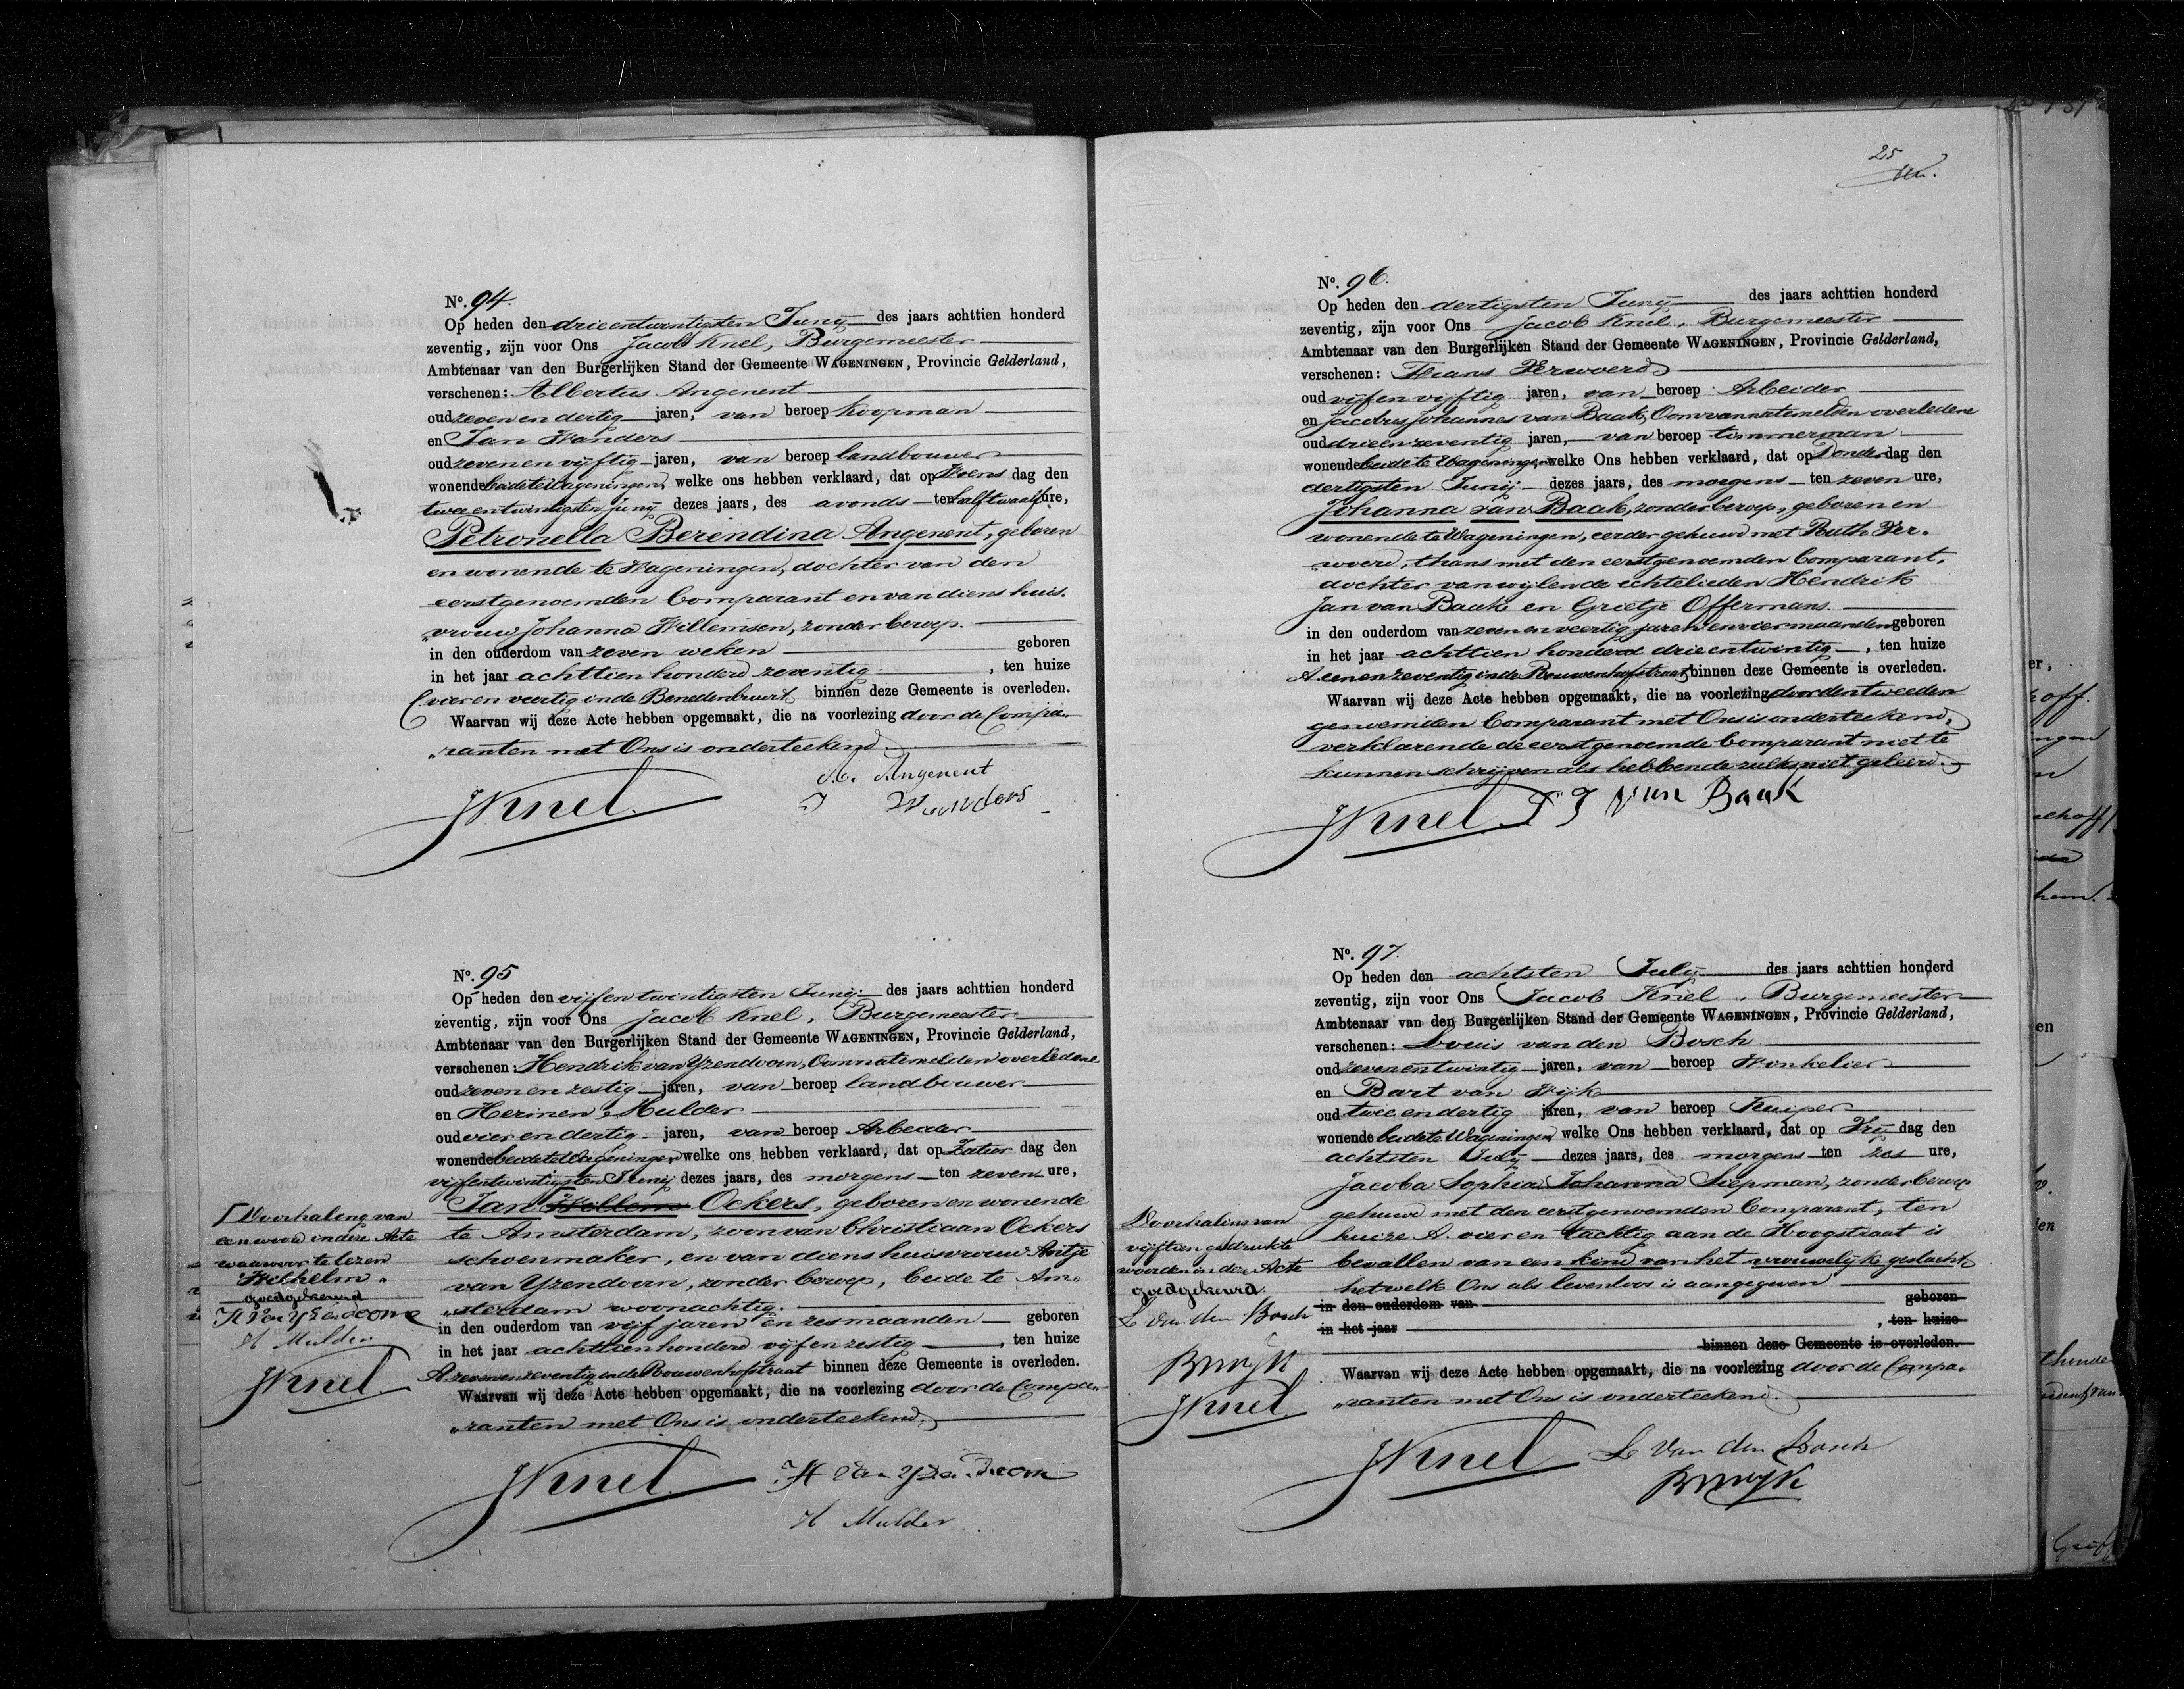 No. 94.
Op heden den drieentwintigsten Junij des jaars achttien honderd
zeventig, zijn voor Ons Jacob Knel, Burgemeester
Ambtenaar van den Burgerlijken Stand der Gemeente WAGENINGEN, Provincie Gelderland,
verschenen: Albertus Angenent
oud zeven en dertig jaren, van beroep koopman
en Jan Wanders
oud zeven en vijftig jaren, van beroep landbouwer
wonende beide te Wageningen, welke ons hebben verklaard, dat op Woens dag den
twee entwintigsten Junij dezes jaars, des avonds ten half twaalf ure,
Petronella Berendina Angenent, geboren
en wonende te Wageningen, dochter van den
eerstgenoemden Comparant en van diens huis-
vrouw Johanna Willemsen, zonder beroep.
in den ouderdom van zeven weken geboren
in het jaar achttien honderd zeventig, ten huize
C vier en veertig in de Benedenbuurt binnen deze Gemeente is overleden.
Waarvan wij deze Acte hebben opgemaakt, die na voorlezing door de Compa-
ranten met Ons is onderteekend.
A. Angenent
JKnel. J Wanders
No. 95
Op heden den vijfentwintigsten Junij des jaars achttien honderd
zeventig, zijn voor Ons Jacob Knel, Burgemeester
Ambtenaar van den Burgerlijken Stand der Gemeente WAGENINGEN, Provincie Gelderland,
verschenen: Hendrik van Yzendoorn, Oom natemelden overledene
oud zeven en zestig jaren, van beroep landbouwer
en Hermen Mulder
oud vier en dertig jaren, van beroep Arbeider
wonende beide te Wageningen, welke ons hebben verklaard, dat op Zatur dag den
vijfentwintigsten Junij dezes jaars, des morgens ten zeven ure,
Jan Willem Ockers, geboren en wonende
te Amsterdam, zoon van Christiaan Ockers
schoenmaker, en van diens huisvrouw Antje
van Yzendoorn, zonder beroep, beide te Am-
sterdam woonachtig.
in den ouderdom van vijf jaren en zes maanden geboren
in het jaar achttienhonderd vijfenzestig, ten huize
A. zevenenzeventig in de Bouwenhofstraat binnen deze Gemeente is overleden.
Waarvan wij deze Acte hebben opgemaakt, die na voorlezing door de Compa-
ranten met Ons is onderteekend.
JKnel. H van Yzendoorn
H Mulder
Doorhaling van
een woord in deze Acte
waarvoor te lezen
Wilhelm
goedgekeurd
H van Yzendoorn
H Mulder
JKnel
25
No. 96.
Op heden den dertigsten Junij des jaars achttien honderd
zeventig, zijn voor Ons Jacob Knel, Burgemeester
Ambtenaar van den Burgerlijken Stand der Gemeente WAGENINGEN, Provincie Gelderland,
verschenen: Frans Verwoerd
oud vijfenvijftig jaren, van beroep Arbeider
en Jacobus Johannes van Baak, Oom van natemelden overledene
oud drieenzeventig jaren, van beroep timmerman
wonende beide te Wageningen welke Ons hebben verklaard, dat op Donderdag den
dertigsten Junij dezes jaars, des morgens ten zeven ure,
Johanna van Baak, zonder beroep, geboren en
wonende te Wageningen, eerder gehuwd met Ruth Ver-
woerd, thans met den eerstgenoemden Comparant,
dochter van wijlen de echtelieden Hendrik
Jan van Baak en Grietje Offermans.
in den ouderdom van zeven en veertig jaren en vier maanden geboren
in het jaar achttien honderd drieentwintig, ten huize
A. eenenzeventig in de Bouwenhofstraat binnen deze Gemeente is overleden.
Waarvan wij deze Acte hebben opgemaakt, die na voorlezing door den tweeden
genoemden Comparant met Ons is onderteekend,
verklarende de eerstgenoemde Comparant niet te
kunnen schrijven als hebbende zulks niet geleerd.
JKnel. J J van Baak
No. 97.
Op heden den achtsten July des jaars achttien honderd
zeventig, zijn voor Ons Jacob Knel, Burgemeester
Ambtenaar van den Burgerlijken Stand der Gemeente WAGENINGEN, Provincie Gelderland,
verschenen: Louis van den Bosch
oud zevenentwintig jaren, van beroep Winkelier
en Bart van Wijk
oud twee en dertig jaren, van beroep Kuiper
wonende beide te Wageningen welke Ons hebben verklaard, dat op Vrij dag den
achtsten July dezes jaars, des morgens ten zes ure,
Jacoba Sophia Johanna Siepman, zonder beroep
gehuwd met den eerstgenoemden Comparant, ten
huize A. vier en tachtig aan de Hoogstraat is
bevallen van een kind van het vrouwelijk geslacht
hetwelk Ons als levenloos is aangegeven
in den ouderdom van geboren
in het jaar , ten huize
binnen deze Gemeente is overleden.
Waarvan wij deze Acte hebben opgemaakt, die na voorlezing door de Compa-
ranten met Ons is onderteekend.
JKnel L van den Bosch
BvWyk
Doorhaling van
vijftien gedrukte
woorden in deze Acte
goedgekeurd.
L van den Bosch
BvWyk
JKnel